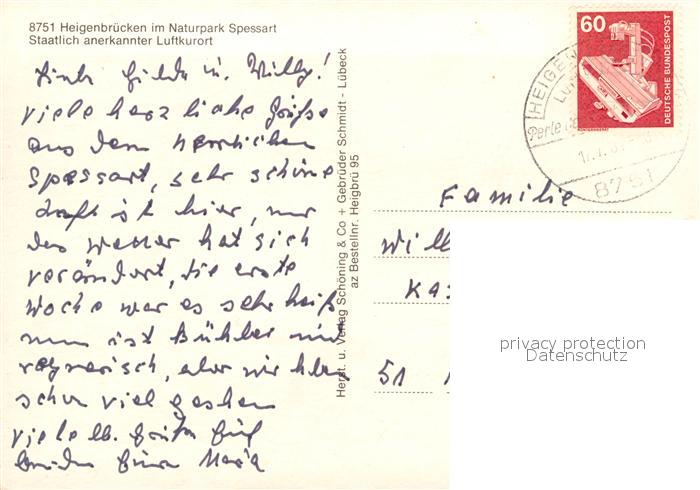 8751 Heigenbrücken im Naturpark Spessart
Staatlich anerkannter Luftkurort
Willy!
viele herzliche Grüße
aus dem herrlichen
Spessart, sehr schöne
ist hier, nur
das wetter hat sich
verändert, die erste
Woche war es sehr heiß
nun ist kühler und
regnerisch, aber wir
schon viel gesehen
viele lb. Grüße
Eure Maria
Herst. u. Verlag Schöning & Co + Gebrüder Schmidt - Lübeck
az Bestellnr. Heigbrü 95
60
DEUTSCHE BUNDESPOST
HEIGEN
Perle
8751
Familie
Will
Kas
51
privacy protection
Datenschutz